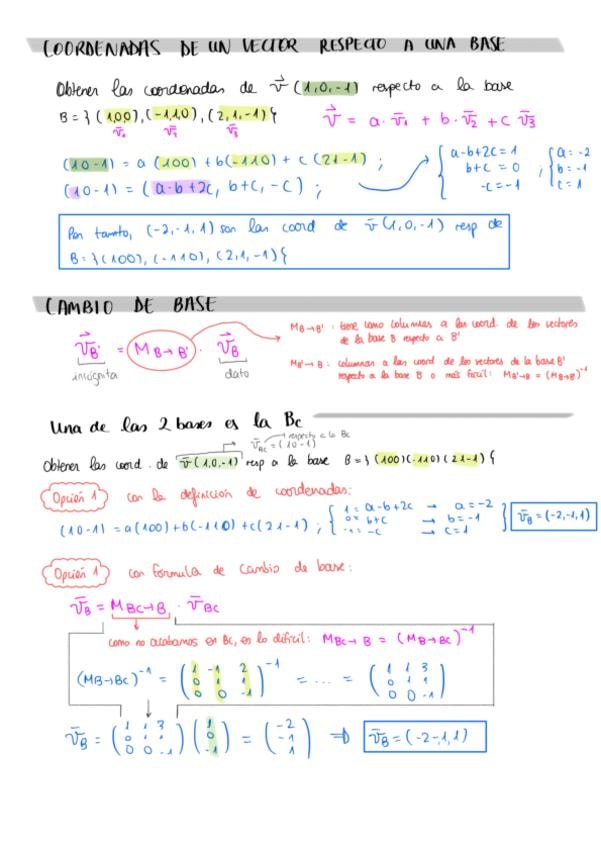 COORDENADAS DE UN VECTOR RESPECTO A UNA BASE
Obtener las coordenadas de v⃗ (1,0,-1) respecto a la base
B = }(1,0,0),(-1,1,0),(2,1,-1){ v⃗ = a·v̄₁ + b·v̄₂ + c v̄₃
v̄₁ v̄₂ v̄₃
(10-1) = a(100)+b(-110)+c(21-1) ;
(10-1) = (a-b+2c, b+c, -c) ;
a-b+2c=1
b+c=0
-c=-1
; a=-2
b=-1
c=1
Por tanto, (-2,-1,1) son las coord de v̄(1,0,-1) resp de
B=}(100),(-110),(2,1,-1){
CAMBIO DE BASE
v⃗B' = MB→B' · v⃗B
incógnita dato
MB→B' : tiene como columnas a las coord. de los vectores
de la base B respecto a B'
MB'→B : columnas a las coord de los vectores de la base B'
respecto a la base B o más fácil: MB'→B = (MB→B')⁻¹
Una de las 2 bases es la Bc
respecto a la Bc
v̄Bc = (10-1)
Obtener las coord. de v̄(1,0,-1) resp a la base B=}(100)(-110)(21-1){
Opción 1 con la definición de coordenadas:
(10-1)=a(100)+b(-110)+c(21-1) ;
1=a-b+2c → a=-2
0=b+c → b=-1
-1=-c → c=1
v̄B=(-2,-1,1)
Opción 1 con fórmula de cambio de base:
v̄B = MBc→B · v̄Bc
como no acabamos en Bc, es lo difícil: MBc→B = (MB→Bc)⁻¹
(MB→Bc)⁻¹ = (1 -1 2
0 1 1
0 0 -1)⁻¹ = ... = (1 1 3
0 1 1
0 0 -1)
v̄B = (1 1 3
0 1 1
0 0 -1) (1
0
-1) = (-2
-1
1) ⇒ v̄B=(-2-,1,1)